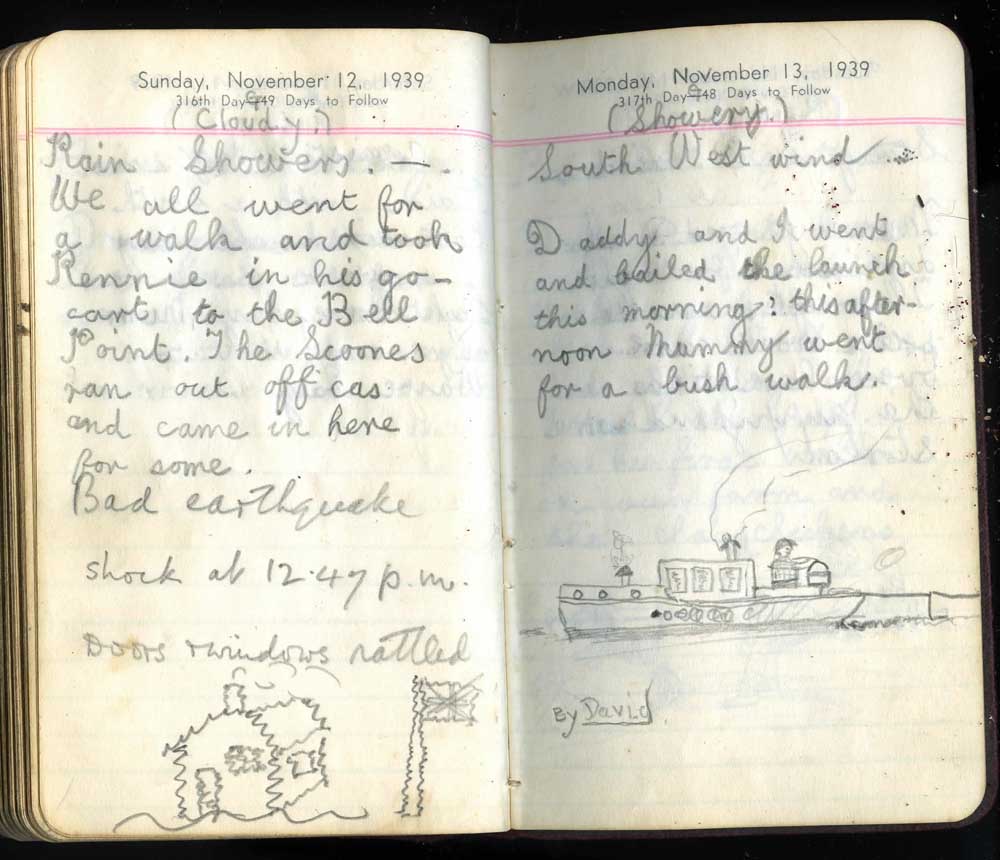 Sunday, November 12, 1939
316th Day—49 Days to Follow
(Cloudy.)
Rain Showers. —.
We all went for
a walk and took
Rennie in his go-
cart to the Bell
Point. The Scoones
ran out of ficas
and came in here
for some.
Bad earthquake
shock at 12.47 p.m.
Doors & windows rattled
Monday, November 13, 1939
317th Day—48 Days to Follow
(Showery.)
South West wind
Daddy and I went
and bailed the launch
this morning: this after-
noon Mummy went
for a bush walk.
By David